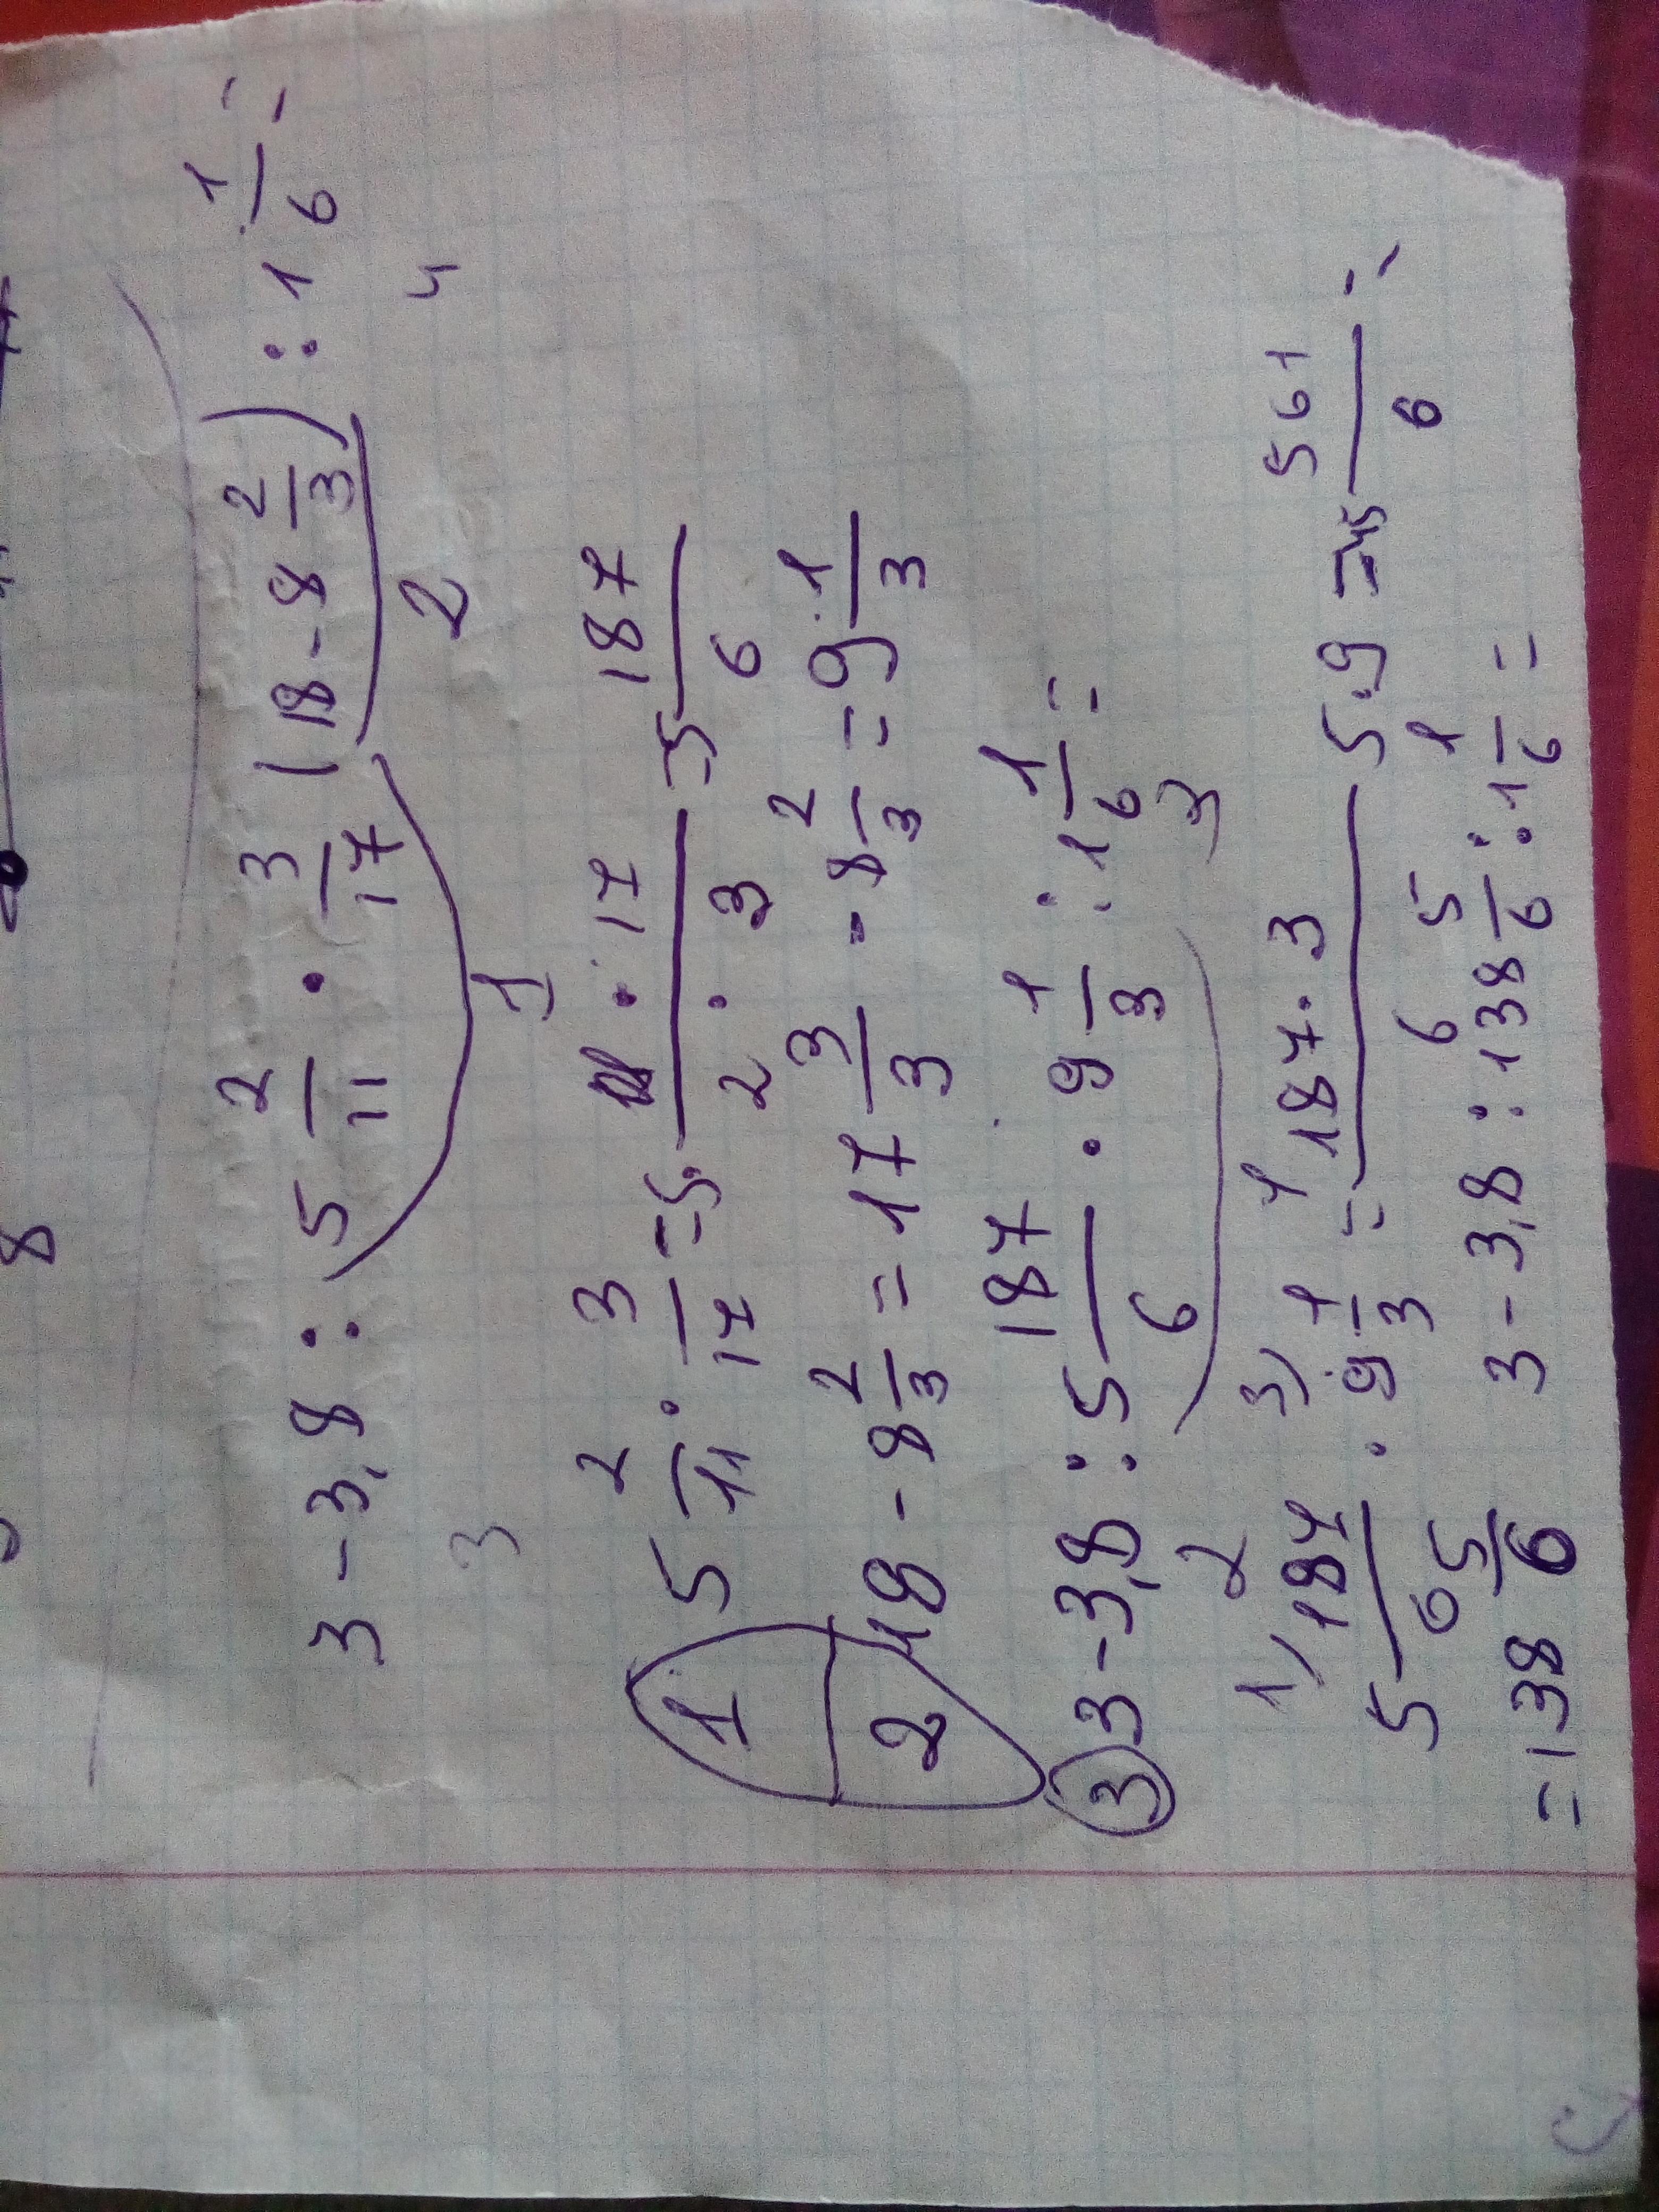 8
3 - 3,8 : 5 2/11 · 3/17 (18 - 8 2/3) : 1 1/6 =
3 1 2 4
1 5 2/11 · 3/17 = 5 · 17 / 2 · 3 = 5 187/6
2 18 - 8 2/3 = 17 3/3 - 8 2/3 = 9 1/3
3 3 - 3,8 : 5 187/6 · 9 1/3 : 1 1/6 =
2 3
1) 5 187/6 · 9 1/3 = 187 · 3 / 6 5 · 9 = 45 561/6 =
= 138 5/6 3 - 3,8 : 138 5/6 : 1 1/6 =